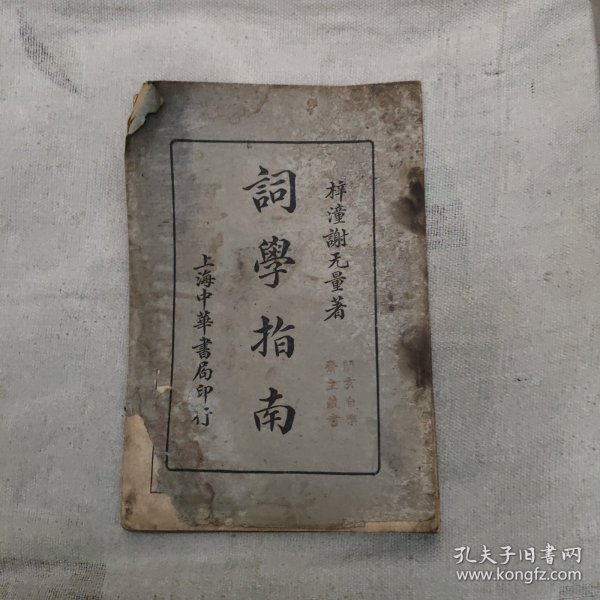 梓潼謝无量著
詞學指南
上海中華書局印行
齋主藏書
孔夫子旧書网
www.kongfz.com